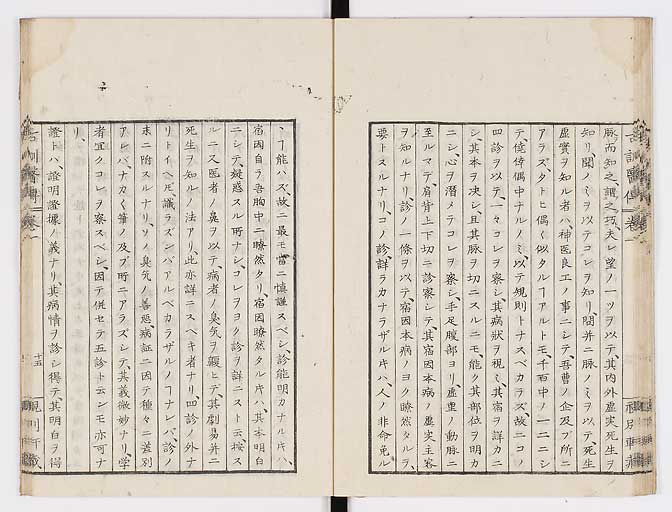 脉而知之、謂之巧夫レ望ノ一ツヲ以テ、其内外虚実死生ヲ
知リ、聞ノミヲ以テコレヲ知リ、問并ニ脉ノミヲ以テ、死生
虚實ヲ知ル者ハ、神医良工ノ事ニシテ、吾曹ノ企及ブ所ニ
アラズ、タトヒ偶〻似タルヿアルトモ、千百中ノ一二ニシ
テ、億倖偶中ナルノミ、以テ規則トナスベカラズ、故ニコノ
四診ヲ以テ、一々コレヲ察シ、其病状ヲ視ミ、其宿ヲ詳カニ
シ、其本ヲ決シ、且其脉ヲ切ニスルニモ、能ク其部位ヲ明カ
ニシ、心ヲ潜メテコレヲ察シ、手足腹部ヨリ、虚里ノ動脉ニ
至ルマデ、肩背上下切ニ診察シテ、其宿因本病ノ虚実主客
ヲ知ルナリ、診ノ一條ヲ以テ、宿因本病ノヨク瞭然タルヲ、
要トスルナリ、コノ診、詳ラカナラザル片ハ、人ノ非命免ル
、ヿ能ハズ、故ニ最モ當ニ慎謹スベシ、診能明カナル片ハ、
宿因自ラ吾胸中ニ瞭然タリ、宿因瞭然タル片ハ、其本明白
ニシテ、疑惑スル所ナシ、コレヲヨク診ヲ詳ニスト云、按ス
ルニ又医者ノ鼻ヲ以テ、病者ノ臭気ヲ齅ヒデ、其劇易并ニ
死生ヲ知ルノ法アリ、此亦詳ニスベキ者ナリ、四診ノ外ナ
リトイヘ𪜈、識ラズンバアルベカラザルノヿナレバ、診ノ
末ニ附スルナリ、ソノ臭気ノ善悪、病証ニ因テ種々ニ差別
アレバ、ナカ〱筆ノ及ブ所ニアラズシテ、其義微妙ナリ、学
者宜クコレヲ察スベシ、因テ併セテ五診ト云ンモ亦可ナ
リ、
證トハ、證明證據ノ義ナリ、其病情ヲ診シ得テ、其明白ヲ得
十五